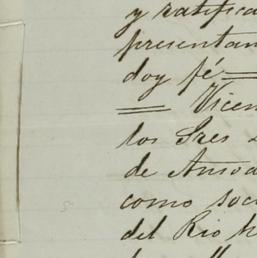 y ratifica
presentan
doy fé
Vicen
los Sres
de Anso
como soci
del Rio